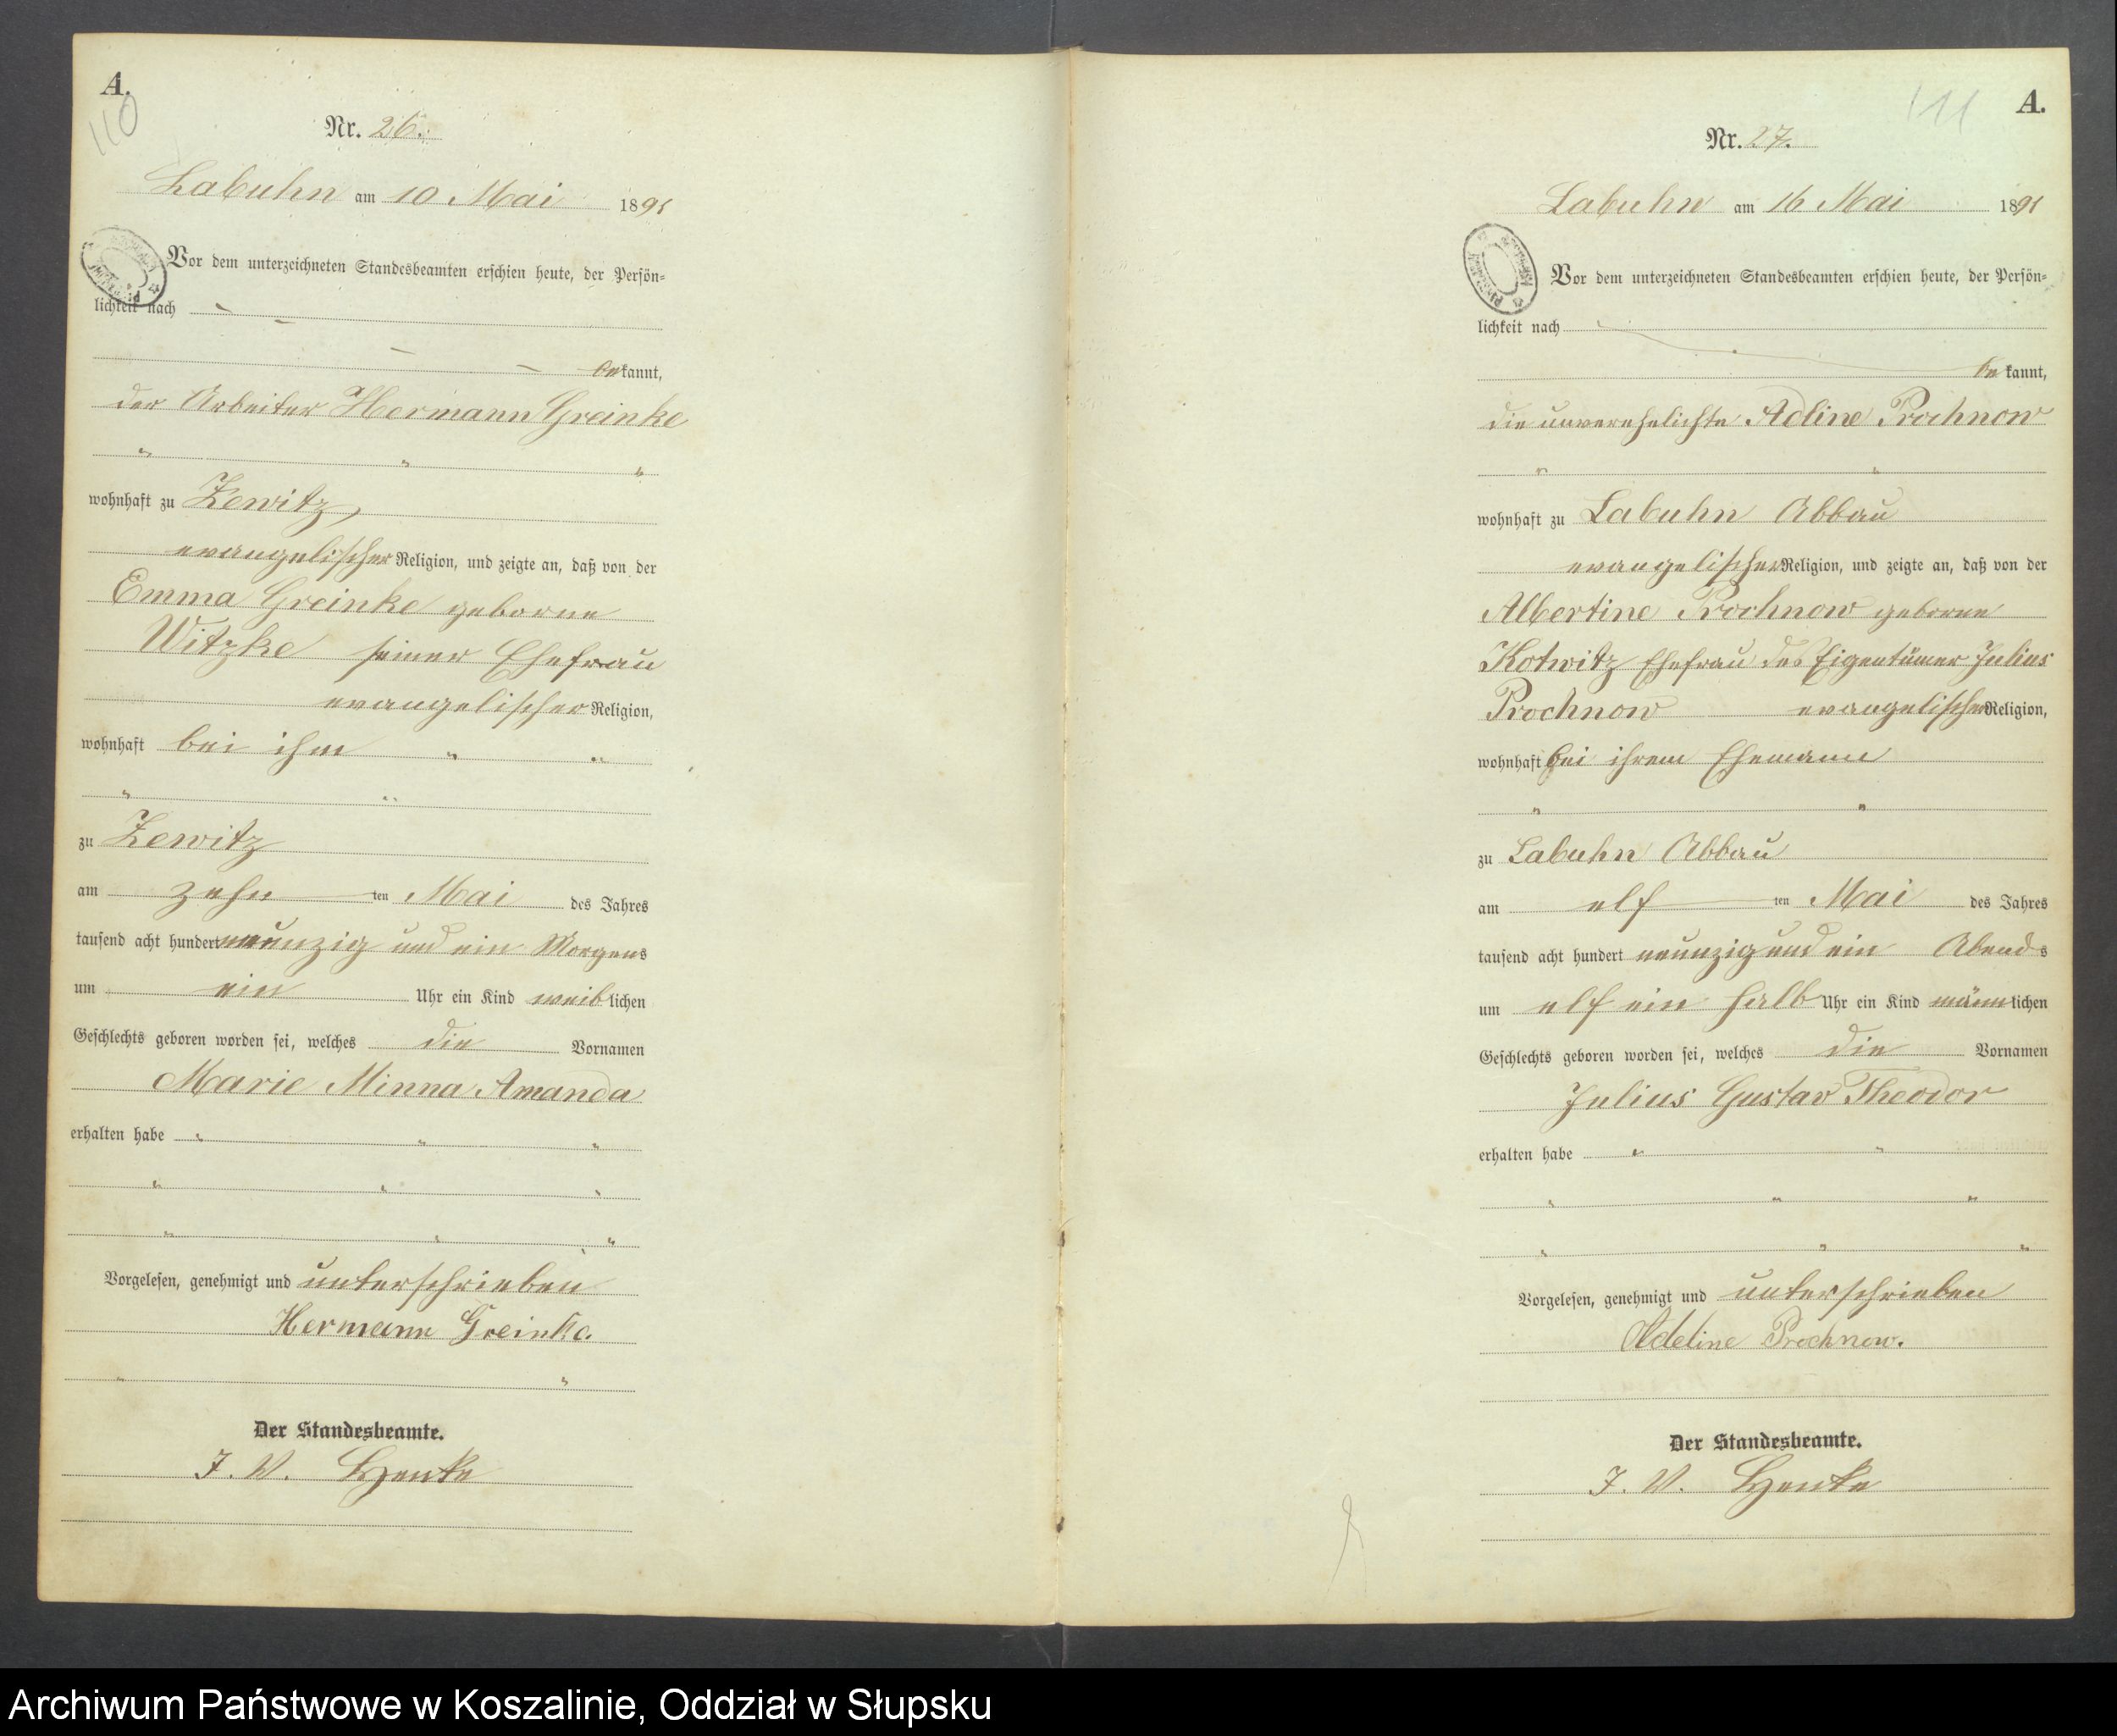 A.
110
Nr. 26.
Labuhn am 10 Mai 1891
Vor dem unterzeichneten Standesbeamten erschien heute, der Persön=
lichkeit nach
bekannt,
der Arbeiter Hermann Greinke
wohnhaft zu Zewitz,
evangelischer Religion, und zeigte an, daß von der
Emma Greinke geborne
Witzke seiner Ehefrau
evangelischer Religion,
wohnhaft bei ihm
zu Zewitz
am zehnten Mai des Jahres
tausend acht hundert neunzig und ein Morgens
um ein Uhr ein Kind weiblichen
Geschlechts geboren worden sei, welches die Vornamen
Marie Minna Amanda
erhalten habe
Vorgelesen, genehmigt und unterschrieben
Hermann Greinke.
Der Standesbeamte.
J. V. Henke
111
A.
Nr. 27.
Labuhn am 16 Mai 1891
Vor dem unterzeichneten Standesbeamten erschien heute, der Persön=
lichkeit nach
bekannt,
die unverehelichte Adline Prochnow
wohnhaft zu Labuhn Abbau
evangelischer Religion, und zeigte an, daß von der
Albertine Prochnow geborne
Kotwitz Ehefrau des Eigentümer Julius
Prochnow evangelischer Religion,
wohnhaft bei ihrem Ehemann
zu Labuhn Abbau
am elften Mai des Jahres
tausend acht hundert neunzig und ein Abends
um elf ein halb Uhr ein Kind männlichen
Geschlechts geboren worden sei, welches die Vornamen
Julius Gustav Theodor
erhalten habe
Vorgelesen, genehmigt und unterschrieben
Adeline Prochnow.
Der Standesbeamte.
J. V. Henke
Archiwum Państwowe w Koszalinie, Oddział w Słupsku